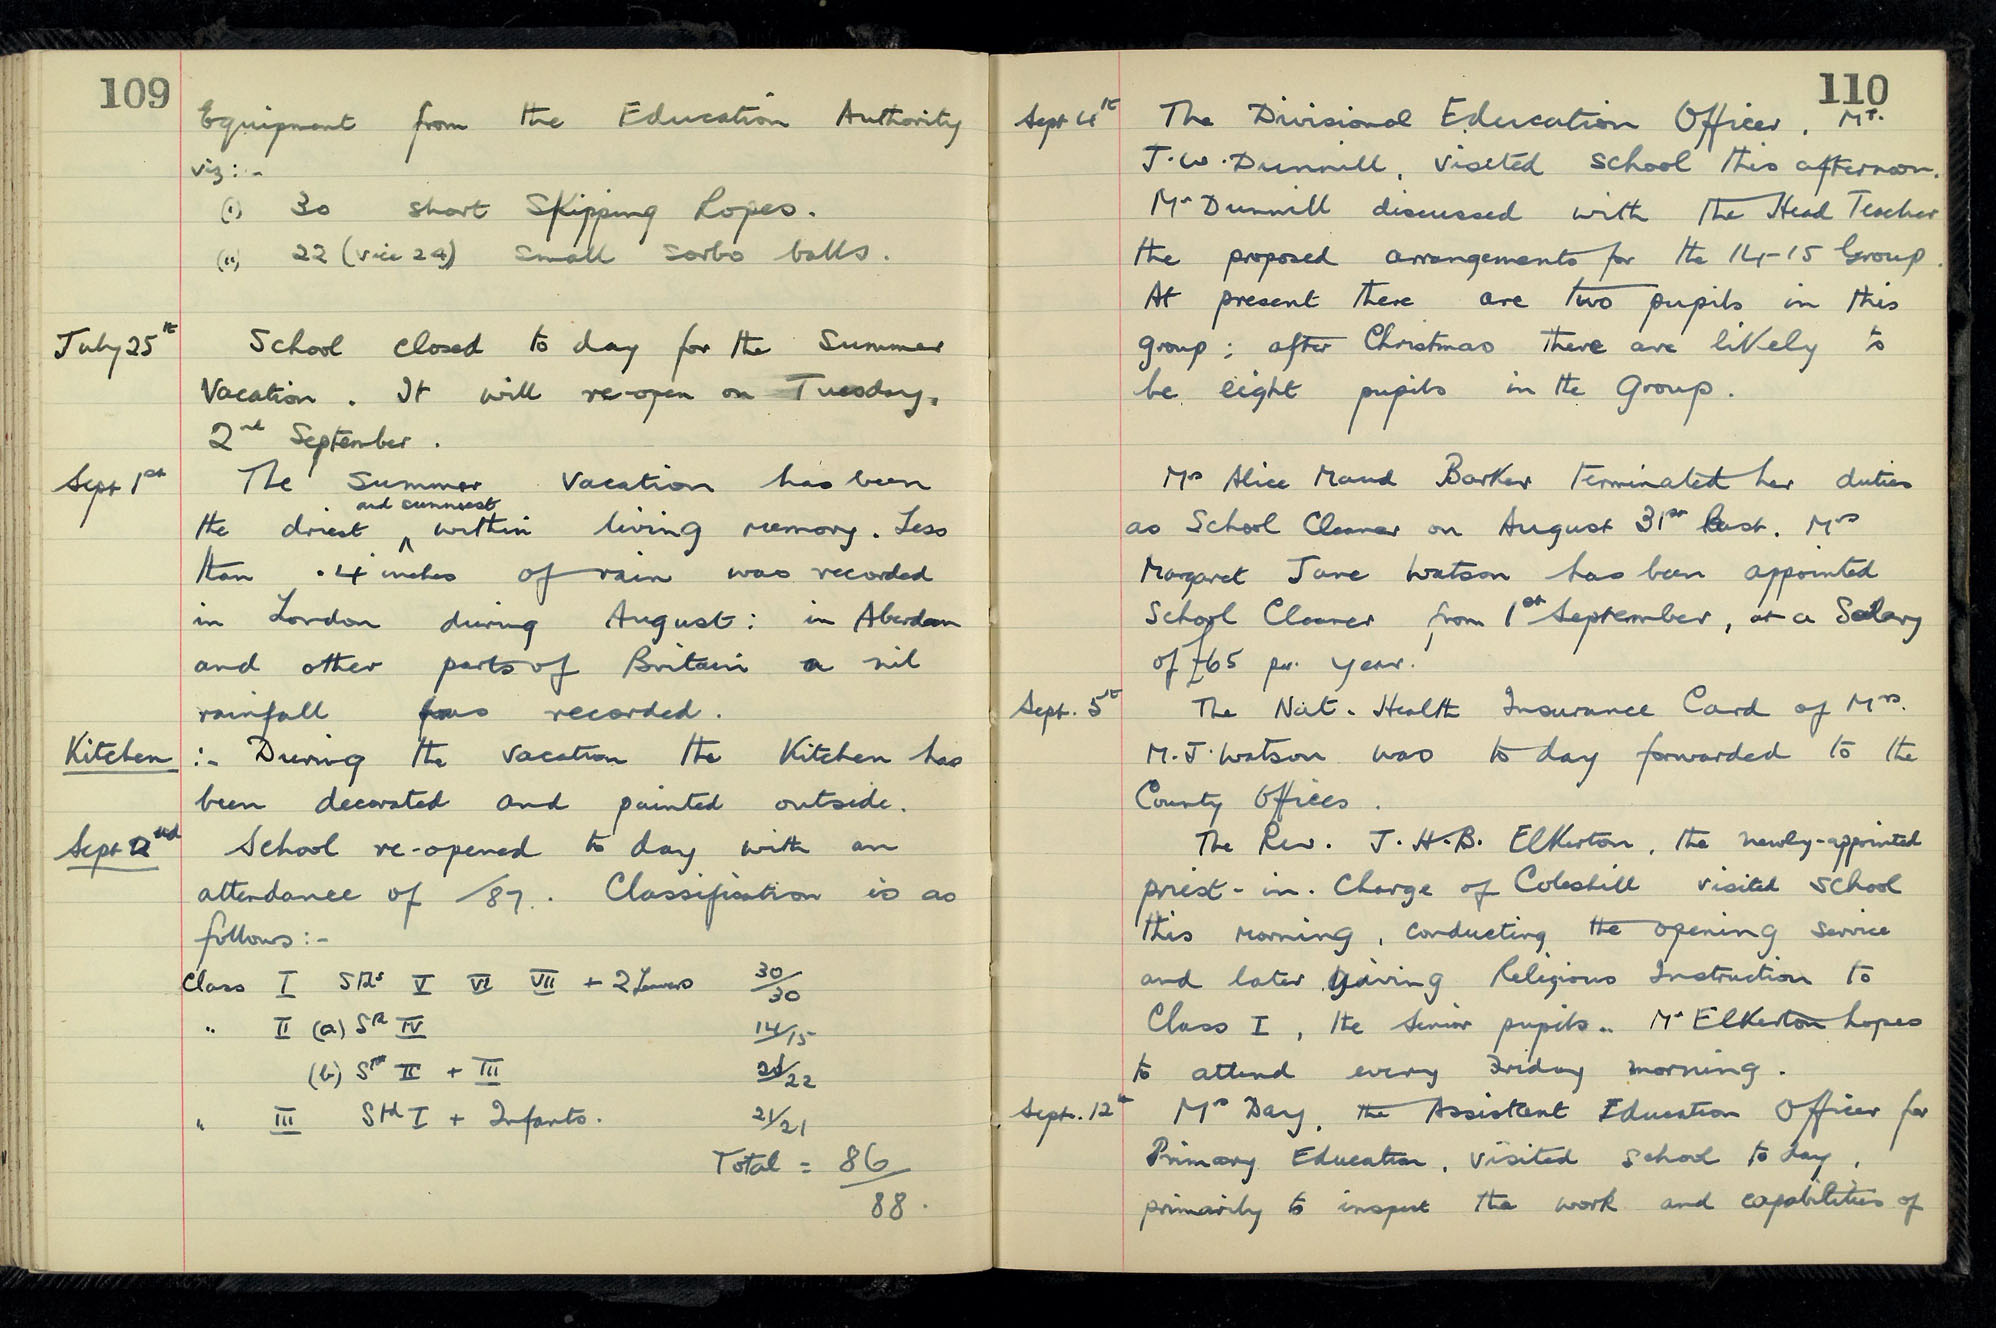 109
Equipment from the Education Authority
viz:-
(i) 30 short Skipping Ropes.
(ii) 22 (vice 24) small sorbo balls.
July 25th School closed to day for the Summer
Vacation. It will re-open on Tuesday,
2nd September.
Sept 1st The Summer Vacation has been
and sunniest
the driest ^ within living memory. Less
than .4 inches of rain was recorded
in London during August: in Aberdeen
and other parts of Britain a nil
rainfall was recorded.
Kitchen :- During the vacation the Kitchen has
been decorated and painted outside.
Sept 2nd School re-opened to day with an
attendance of /87. Classification is as
follows:-
Class I Stds V VI VII + 2 Leavers 30/30
" II (a) Std IV 14/15
(b) Std II + III 21/22
" III Std I + Infants. 21/21
Total = 86/
88.
110
Sept 4th The Divisional Education Officer, Mr.
J.W. Dunnill, visited school this afternoon.
Mr Dunnill discussed with the Head Teacher
the proposed arrangements for the 14-15 Group.
At present there are two pupils in this
group; after Christmas there are likely to
be eight pupils in the Group.
Mrs Alice Maud Barker terminated her duties
as School Cleaner on August 31st last. Mrs
Margaret Jane Watson has been appointed
School Cleaner from 1st September, at a Salary
of £65 per. year.
Sept. 5th The Nat. Health Insurance Card of Mrs.
M.J. Watson was to day forwarded to the
County Offices.
The Rev. J.H.B. Elkerton, the newly-appointed
priest-in-Charge of Coleshill visited School
this morning, conducting the opening service
and later giving Religious Instruction to
Class I, the Senior pupils.. Mr Elkerton hopes
to attend every Friday morning.
Sept. 12th Mrs Day, the Assistant Education Officer for
Primary Education, visited School to day,
primarily to inspect the work and capabilities of